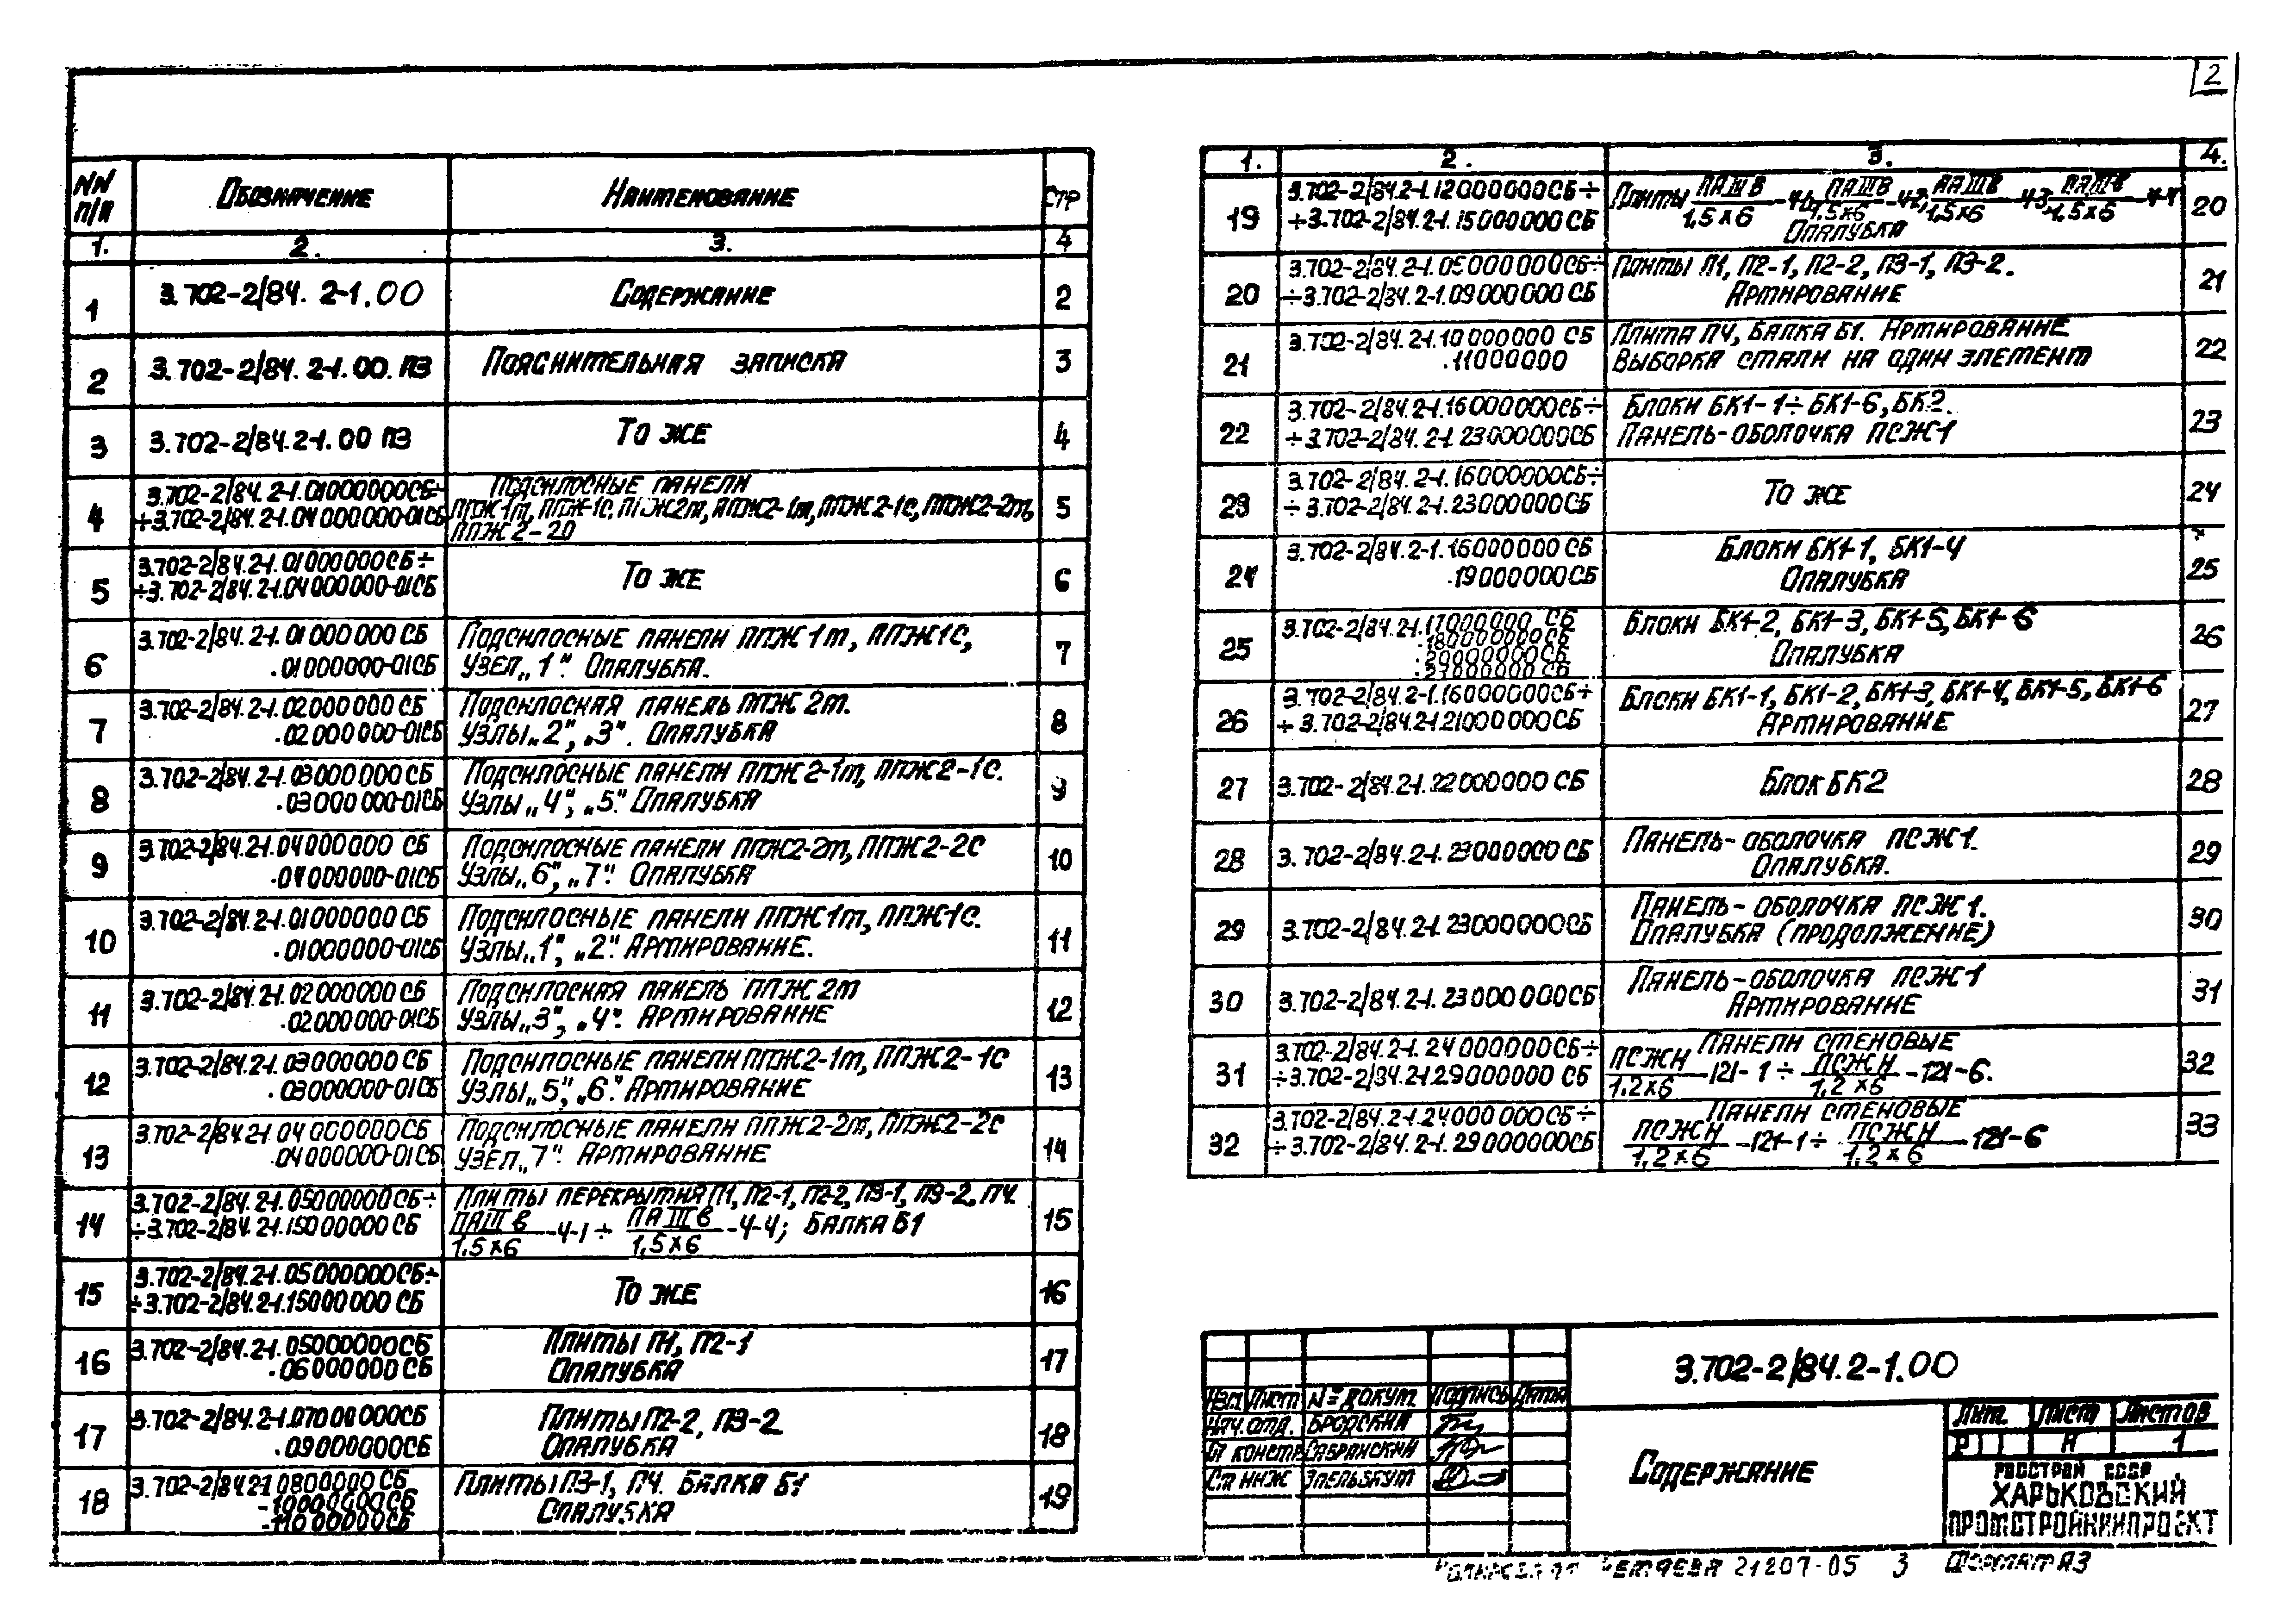 2
NN п/п Обозначение Наименование Стр
1. 2. 3. 4
1 3.702-2/84. 2-1.00 Содержание 2
2 3.702-2/84. 2-1.00. ПЗ Пояснительная записка 3
3 3.702-2/84.2-1.00 ПЗ То же 4
4 3.702-2/84.2-1.01000000СБ÷ Подсилосные панели
÷3.702-2/84.2-1.04000000-01СБ ППЖ1т, ППЖ-1С, ППЖ2т, ППЖ2-1т, ППЖ2-1С, ППЖ2-2т, 5
ППЖ2-20
5 3.702-2/84.2-1.01000000СБ÷
÷3.702-2/84.2-1.04000000-01СБ То же 6
6 3.702-2/84.2-1.01000000СБ Подсилосные панели ППЖ1т, ППЖ1С,
.01000000-01СБ Узел „1". Опалубка. 7
7 3.702-2/84.2-1.02000000СБ Подсилосная панель ППЖ2т.
.02000000-01СБ Узлы „2", „3". Опалубка 8
8 3.702-2/84.2-1.03000000СБ Подсилосные панели ППЖ2-1т, ППЖ2-1С.
.03000000-01СБ Узлы „4", „5". Опалубка 9
9 3.702-2/84.2-1.04000000 СБ Подсилосные панели ППЖ2-2т, ППЖ2-2С
.04000000-01СБ Узлы „6", „7". Опалубка 10
10 3.702-2/84.2-1.01000000СБ Подсилосные панели ППЖ1т, ППЖ1С.
.01000000-01СБ Узлы „1", „2". Армирование. 11
11 3.702-2/84.2-1.02000000СБ Подсилосная панель ППЖ2т
.02000000-01СБ Узлы „3", „4". Армирование 12
12 3.702-2/84.2-1.03000000СБ Подсилосные панели ППЖ2-1т, ППЖ2-1С
.03000000-01СБ Узлы „5", „6". Армирование 13
13 3.702-2/84.2-1.04000000СБ Подсилосные панели ППЖ2-2т, ППЖ2-2С
.04000000-01СБ Узел „7". Армирование 14
14 3.702-2/84.2-1.05000000СБ÷ Плиты перекрытия П1, П2-1, П2-2, П3-1, П3-2, П4.
÷3.702-2/84.2-1.15000000СБ ПАIIIВ/1,5х6-4-1÷ ПАIIIВ/1,5х6-4-4; Балка Б1 15
15 3.702-2/84.2-1.05000000СБ÷
÷3.702-2/84.2-1.15000000СБ То же 16
16 3.702-2/84.2-1.05000000СБ Плиты П1, П2-1
.06000000СБ Опалубка 17
17 3.702-2/84.2-1.07000000СБ Плиты П2-2, П3-2
.09000000СБ Опалубка 18
18 3.702-2/84.2-1.0800000 СБ Плиты П3-1, П4. Балка Б1
-10000000СБ Опалубка 19
-11000000СБ
1. 2. 3. 4.
19 3.702-2/84.2-1.12000000СБ÷ Плиты ПАIIIВ/1,5х6-4-1, ПАIIIВ/1,5х6-4-2, ПАIIIВ/1,5х6-4-3, ПАIIIВ/1,5х6-4-4 20
÷3.702-2/84.2-1.15000000СБ Опалубка
20 3.702-2/84.2-1.05000000СБ÷ Плиты П1, П2-1, П2-2, П3-1, П3-2.
÷3.702-2/84.2-1.09000000СБ Армирование 21
21 3.702-2/84.2-1.10000000 СБ Плита П4, Балка Б1. Армирование
.11000000 Выборка стали на один элемент 22
22 3.702-2/84.2-1.16000000СБ÷ Блоки БК1-1÷БК1-6, БК2.
÷3.702-2/84.2-1.23000000СБ Панель-оболочка ПСЖ1 23
23 3.702-2/84.2-1.16000000СБ÷
÷3.702-2/84.2-1.23000000СБ То же 24
24 3.702-2/84.2-1.16000000СБ Блоки БК1-1, БК1-4
.19000000СБ Опалубка 25
25 3.702-2/84.2-1.17000000 СБ Блоки БК1-2, БК1-3, БК1-5, БК1-6
.18000000СБ Опалубка 26
.20000000СБ
.21000000СБ
26 3.702-2/84.2-1.16000000СБ÷ Блоки БК1-1, БК1-2, БК1-3, БК1-4, БК1-5, БК1-6
÷3.702-2/84.2-1.21000000СБ Армирование 27
27 3.702-2/84.2-1.22000000СБ Блок БК2 28
28 3.702-2/84.2-1.23000000СБ Панель-оболочка ПСЖ1.
Опалубка. 29
29 3.702-2/84.2-1.23000000СБ Панель-оболочка ПСЖ1.
Опалубка (продолжение) 30
30 3.702-2/84.2-1.23000000СБ Панель-оболочка ПСЖ1
Армирование 31
31 3.702-2/84.2-1.24000000СБ÷ Панели стеновые
÷3.702-2/84.2-1.29000000СБ ПСЖН/1,2х6-121-1÷ ПСЖН/1,2х6-121-6. 32
32 3.702-2/84.2-1.24000000СБ÷ Панели стеновые
÷3.702-2/84.2-1.29000000СБ ПСЖН/1,2х6-121-1÷ ПСЖН/1,2х6-121-6 33
3.702-2/84.2-1.00
Изм. Лист № докум. Подпись Дата
Нач. отд. Бродский
Гл констр. Сабранский
Ст инж
Содержание
Лит. Лист Листов
Р Н 1
Госстрой СССР
ХАРЬКОВСКИЙ
ПРОМСТРОЙНИИПРОЕКТ
21207-05 3 Формат А3